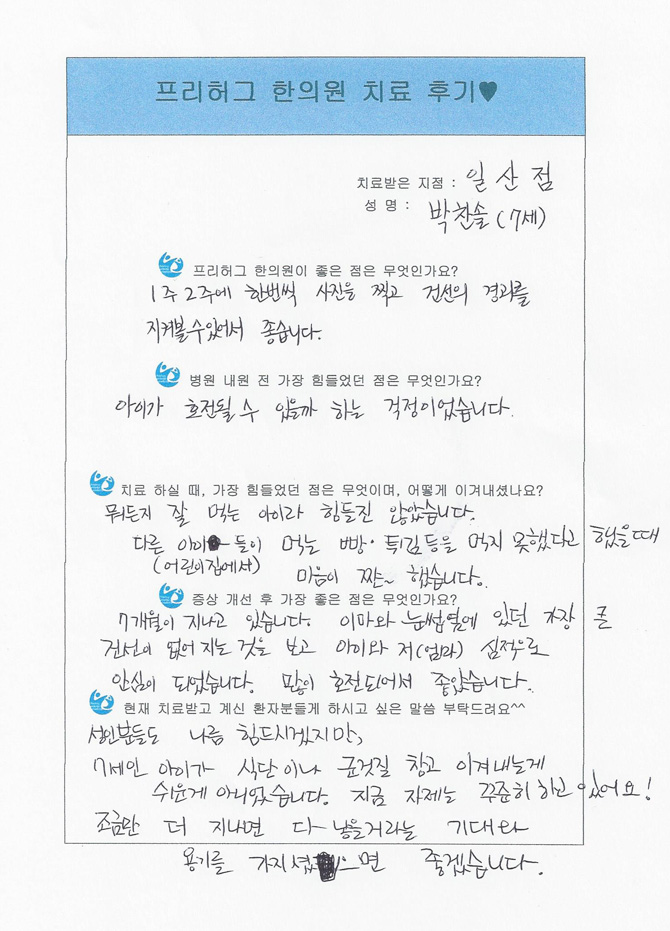 프리허그 한의원 치료 후기♥
치료받은 지점 : 일산점
성 명 : 박찬솔(7세)
프리허그 한의원이 좋은 점은 무엇인가요?
1주 2주에 한번씩 사진을 찍고 건선의 경과를
지켜볼수있어서 좋습니다.
병원 내원 전 가장 힘들었던 점은 무엇인가요?
아이가 호전될 수 있을까 하는 걱정이었습니다.
치료 하실 때, 가장 힘들었던 점은 무엇이며, 어떻게 이겨내셨나요?
뭐든지 잘 먹는 아이라 힘들진 않았습니다.
다른 아이들이 먹는 빵·튀김등을 먹지 못했다고 했을때
(어린이집에서) 마음이 짠~ 했습니다.
증상 개선 후 가장 좋은 점은 무엇인가요?
7개월이 지나고 있습니다. 이마와 눈썹옆에 있던 가장 큰
건선이 없어지는 것을 보고 아이와 저(엄마) 심적으로
안심이 되었습니다. 많이 호전되어서 좋았습니다.
현재 치료받고 계신 환자분들게 하시고 싶은 말씀 부탁드려요^^
성인분들도 나름 힘드시겠지만,
7세인 아이가 식단이나 군것질 참고 이겨내는게
쉬운게 아니었습니다. 지금 자제는 꾸준히 하고 있어요!
조금만 더 지나면 다 낳을거라는 기대와
용기를 가지셨으면 좋겠습니다.